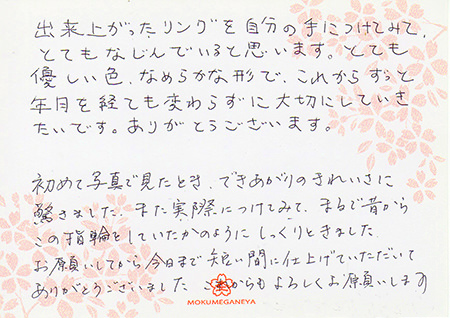 出来上がったリングを自分の手につけてみて、
とてもなじんでいると思います。とても
優しい色、なめらかな形で、これからずっと
年月を経ても変わらずに大切にしていき
たいです。ありがとうございます。
初めて写真で見たとき、できあがりのきれいさに
驚きました。また実際につけてみて、まるで昔から
この指輪をしていたかのようにしっくりときました
お願いしてから今日まで短い間に仕上げていただいて
ありがとうございました これからもよろしくお願いします
MOKUMEGANEYA